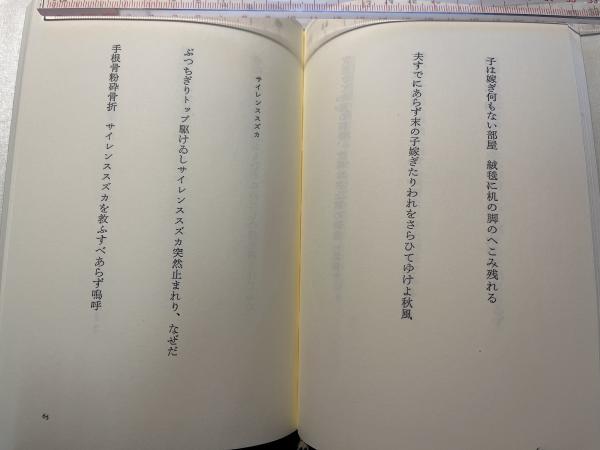 子は嫁ぎ何もない部屋　絨毯に机の脚のへこみ残れる
夫すでにあらず末の子嫁ぎたりわれをさらひてゆけよ秋風
サイレンススズカ
ぶつちぎりトップ駆けゐしサイレンススズカ突然止まれり、なぜだ
手根骨粉砕骨折　サイレンススズカを救ふすべあらず嗚呼
65